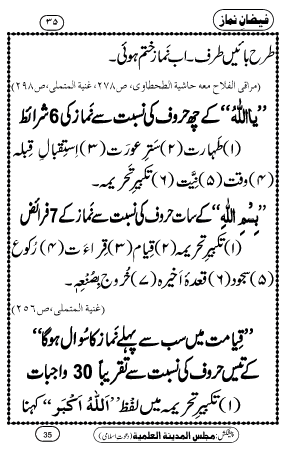 فیضانِ نماز
۳۵
طرح بائیں طرف۔ اب نَماز ختم ہوئی۔
(مراقی الفلاح معہ حاشیة الطحطاوی، ص۲۷۸، غنیة المتملی، ص۲۹۸)
”یا اللہُ“ کے چھ حروف کی نسبت سے نَماز کی 6 شرائط
(۱) طہارت (۲) سَترِ عورت (۳) اِستقبالِ قبلہ
(۴) وقت (۵) نِیّت (۶) تکبیرِ تحریمہ۔
”بِسْمِ اللّٰہِ“ کے سات حروف کی نسبت سے نَماز کے 7 فرائض
(۱) تکبیرِ تحریمہ (۲) قِیام (۳) قِراءَت (۴) رُکوع
(۵) سجود (۶) قعدۂ اَخیرہ (۷) خُروجِ بِصُنْعِہٖ۔
(غنیة المتملی، ص۲۵۶)
”قِیامت میں سب سے پہلے نَماز کا سُوال ہوگا“
کے تیس حروف کی نسبت سے تقریباً 30 واجبات
(۱) تکبیرِ تحریمہ میں لفظ ”اَللّٰہُ اَکْبَر“ کہنا
35
پیشکش: مجلس المدینة العلمیة (دعوتِ اسلامی)